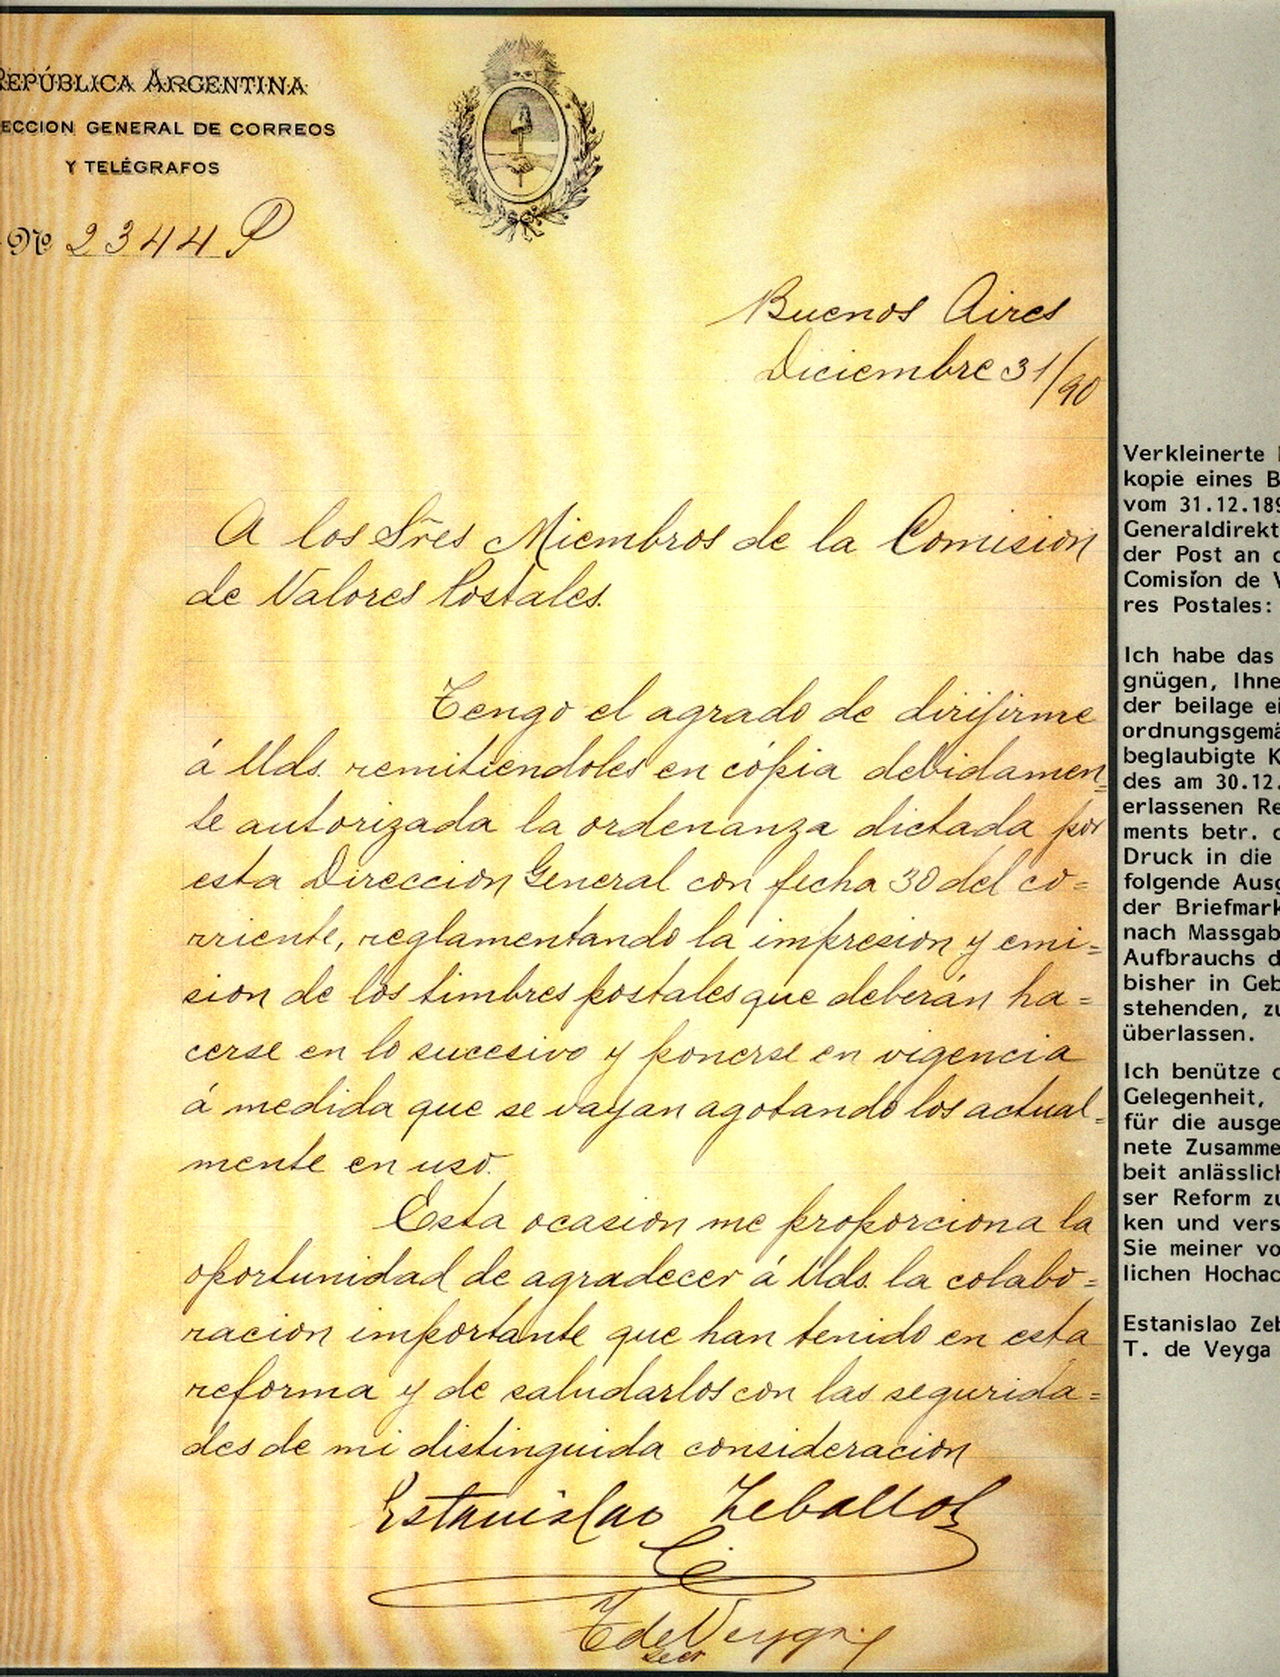 REPÚBLICA ARGENTINA
ECCION GENERAL DE CORREOS
Y TELÉGRAFOS
Nº 2344 P
Buenos Aires
Diciembre 31/90
A los Sres Miembros de la Comision
de Valores Postales.
Tengo el agrado de dirijirme
á Uds. remitiendoles en cópia debidamen=
te autorizada la ordenanza dictada por
esta Direccion General con fecha 30 del co=
rriente, reglamentando la impresion y emi=
sion de los timbres postales que deberán ha=
cerse en lo sucesivo y ponerse en vigencia
á medida que se vayan agotando los actual=
mente en uso.
Esta ocasion me proporciona la
oportunidad de agradecer á Uds. la colabo=
racion importante que han tenido en esta
reforma y de saludarlos con las segurida=
des de mi distinguida consideracion
Estanislao Zeballos
T de Veyga
Secr
Verkleinerte
kopie eines B
vom 31.12.189
Generaldirekt
der Post an d
Comisíon de V
res Postales:
Ich habe das
gnügen, Ihne
der beilage ei
ordnungsgemä
beglaubigte K
des am 30.12.
erlassenen Re
ments betr. d
Druck in die
folgende Ausg
der Briefmark
nach Massgab
Aufbrauchs d
bisher in Geb
stehenden, zu
überlassen.
Ich benütze d
Gelegenheit,
für die ausge
nete Zusamme
beit anlässlich
ser Reform zu
ken und vers
Sie meiner vo
lichen Hochac
Estanislao Zeb
T. de Veyga